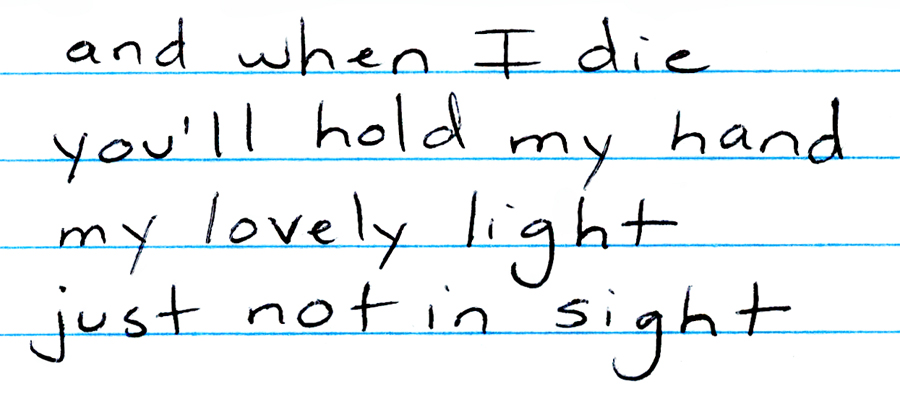 and when I die
you'll hold my hand
my lovely light
just not in sight